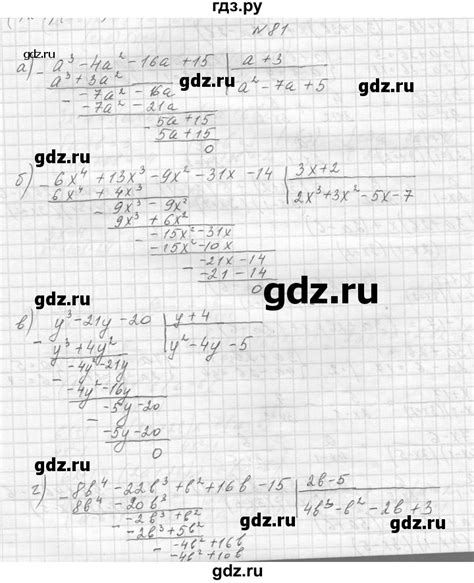 гдз.ру
№81
а) - a³ - 4a² - 16a + 15 | a + 3
a³ + 3a² | a² - 7a + 5
- -7a² - 16a
-7a² - 21a
- 5a + 15
5a + 15
0
gdz.ru
gdz.ru
gdz.ru
б) - 6x⁴ + 13x³ - 9x² - 31x - 14 | 3x + 2
6x⁴ + 4x³ | 2x³ + 3x² - 5x - 7
- 9x³ - 9x²
9x³ + 6x²
- -15x² - 31x
-15x² - 10x
- -21x - 14
-21 - 14
0
gdz.ru
gdz.ru
в) - y³ - 21y - 20 | y + 4
y³ + 4y² | y² - 4y - 5
- -4y² - 21y
-4y² - 16y
- -5y - 20
-5y - 20
0
gdz.ru
gdz.ru
г) - 8b⁴ - 22b³ + b² + 16b - 15 | 2b - 5
8b⁴ - 20b³ | 4b³ - b² - 2b + 3
- -2b³ + b²
-2b³ + 5b²
- -4b² + 16b
-4b² + 10b
gdz.ru
gdz.ru
gdz.ru